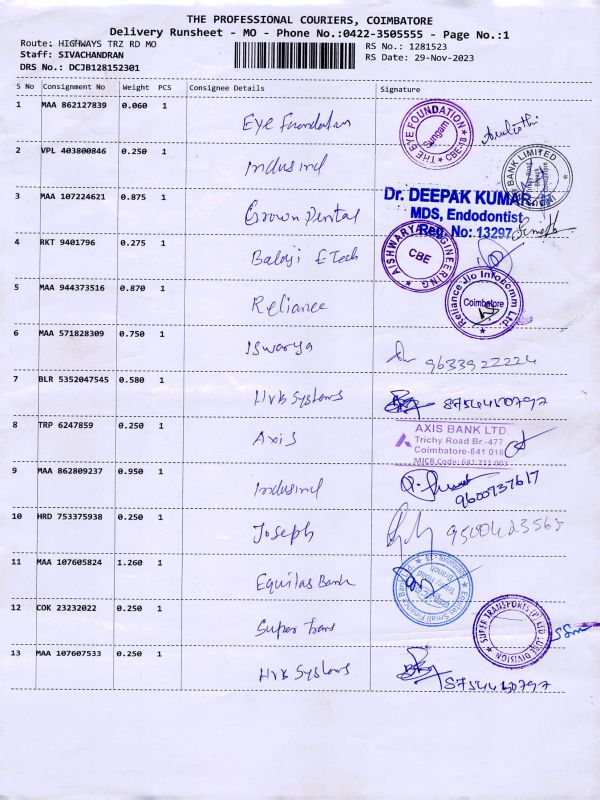 THE PROFESSIONAL COURIERS, COIMBATORE
Delivery Runsheet - MO - Phone No.:0422-3505555 - Page No.:1
Route: HIGHWAYS TRZ RD MO
Staff: SIVACHANDRAN
DRS No.: DCJB128152301
RS No.: 1281523
RS Date: 29-Nov-2023
S No Consignment No Weight PCS Consignee Details Signature
1 MAA 862127839 0.060 1
Eye Foundation
THE EYE FOUNDATION
Sungam
CBE-18
2 VPL 403800846 0.250 1
Indusind
BANK LIMITED
3 MAA 107224621 0.875 1
Crown Dental
Dr. DEEPAK KUMAR.
MDS, Endodontist
Reg. No: 13297
4 RKT 9401796 0.275 1
Balaji E Tech
AISHWARYA ENGINEERING
CBE
5 MAA 944373516 0.870 1
Reliance
Reliance Jio Infocomm Ltd
Coimbatore
6 MAA 571828309 0.750 1
Iswarya
9633922224
7 BLR 5352047545 0.580 1
HVK Systems
8 TRP 6247859 0.250 1
Axis
AXIS BANK LTD.
Trichy Road Br.-477
Coimbatore-641 018
MICR Code: 641 211 003
9 MAA 862809237 0.950 1
Indusind
9600737617
10 HRD 753375938 0.250 1
Joseph
11 MAA 107605824 1.260 1
Equitas Bank
Equitas Small Finance Bank Ltd
Trichy Road
Branch
12 COK 23232022 0.250 1
Super Trans
SUPER TRANSPORTS (P) LTD
DIVISION
13 MAA 107607533 0.250 1
HVK Systems